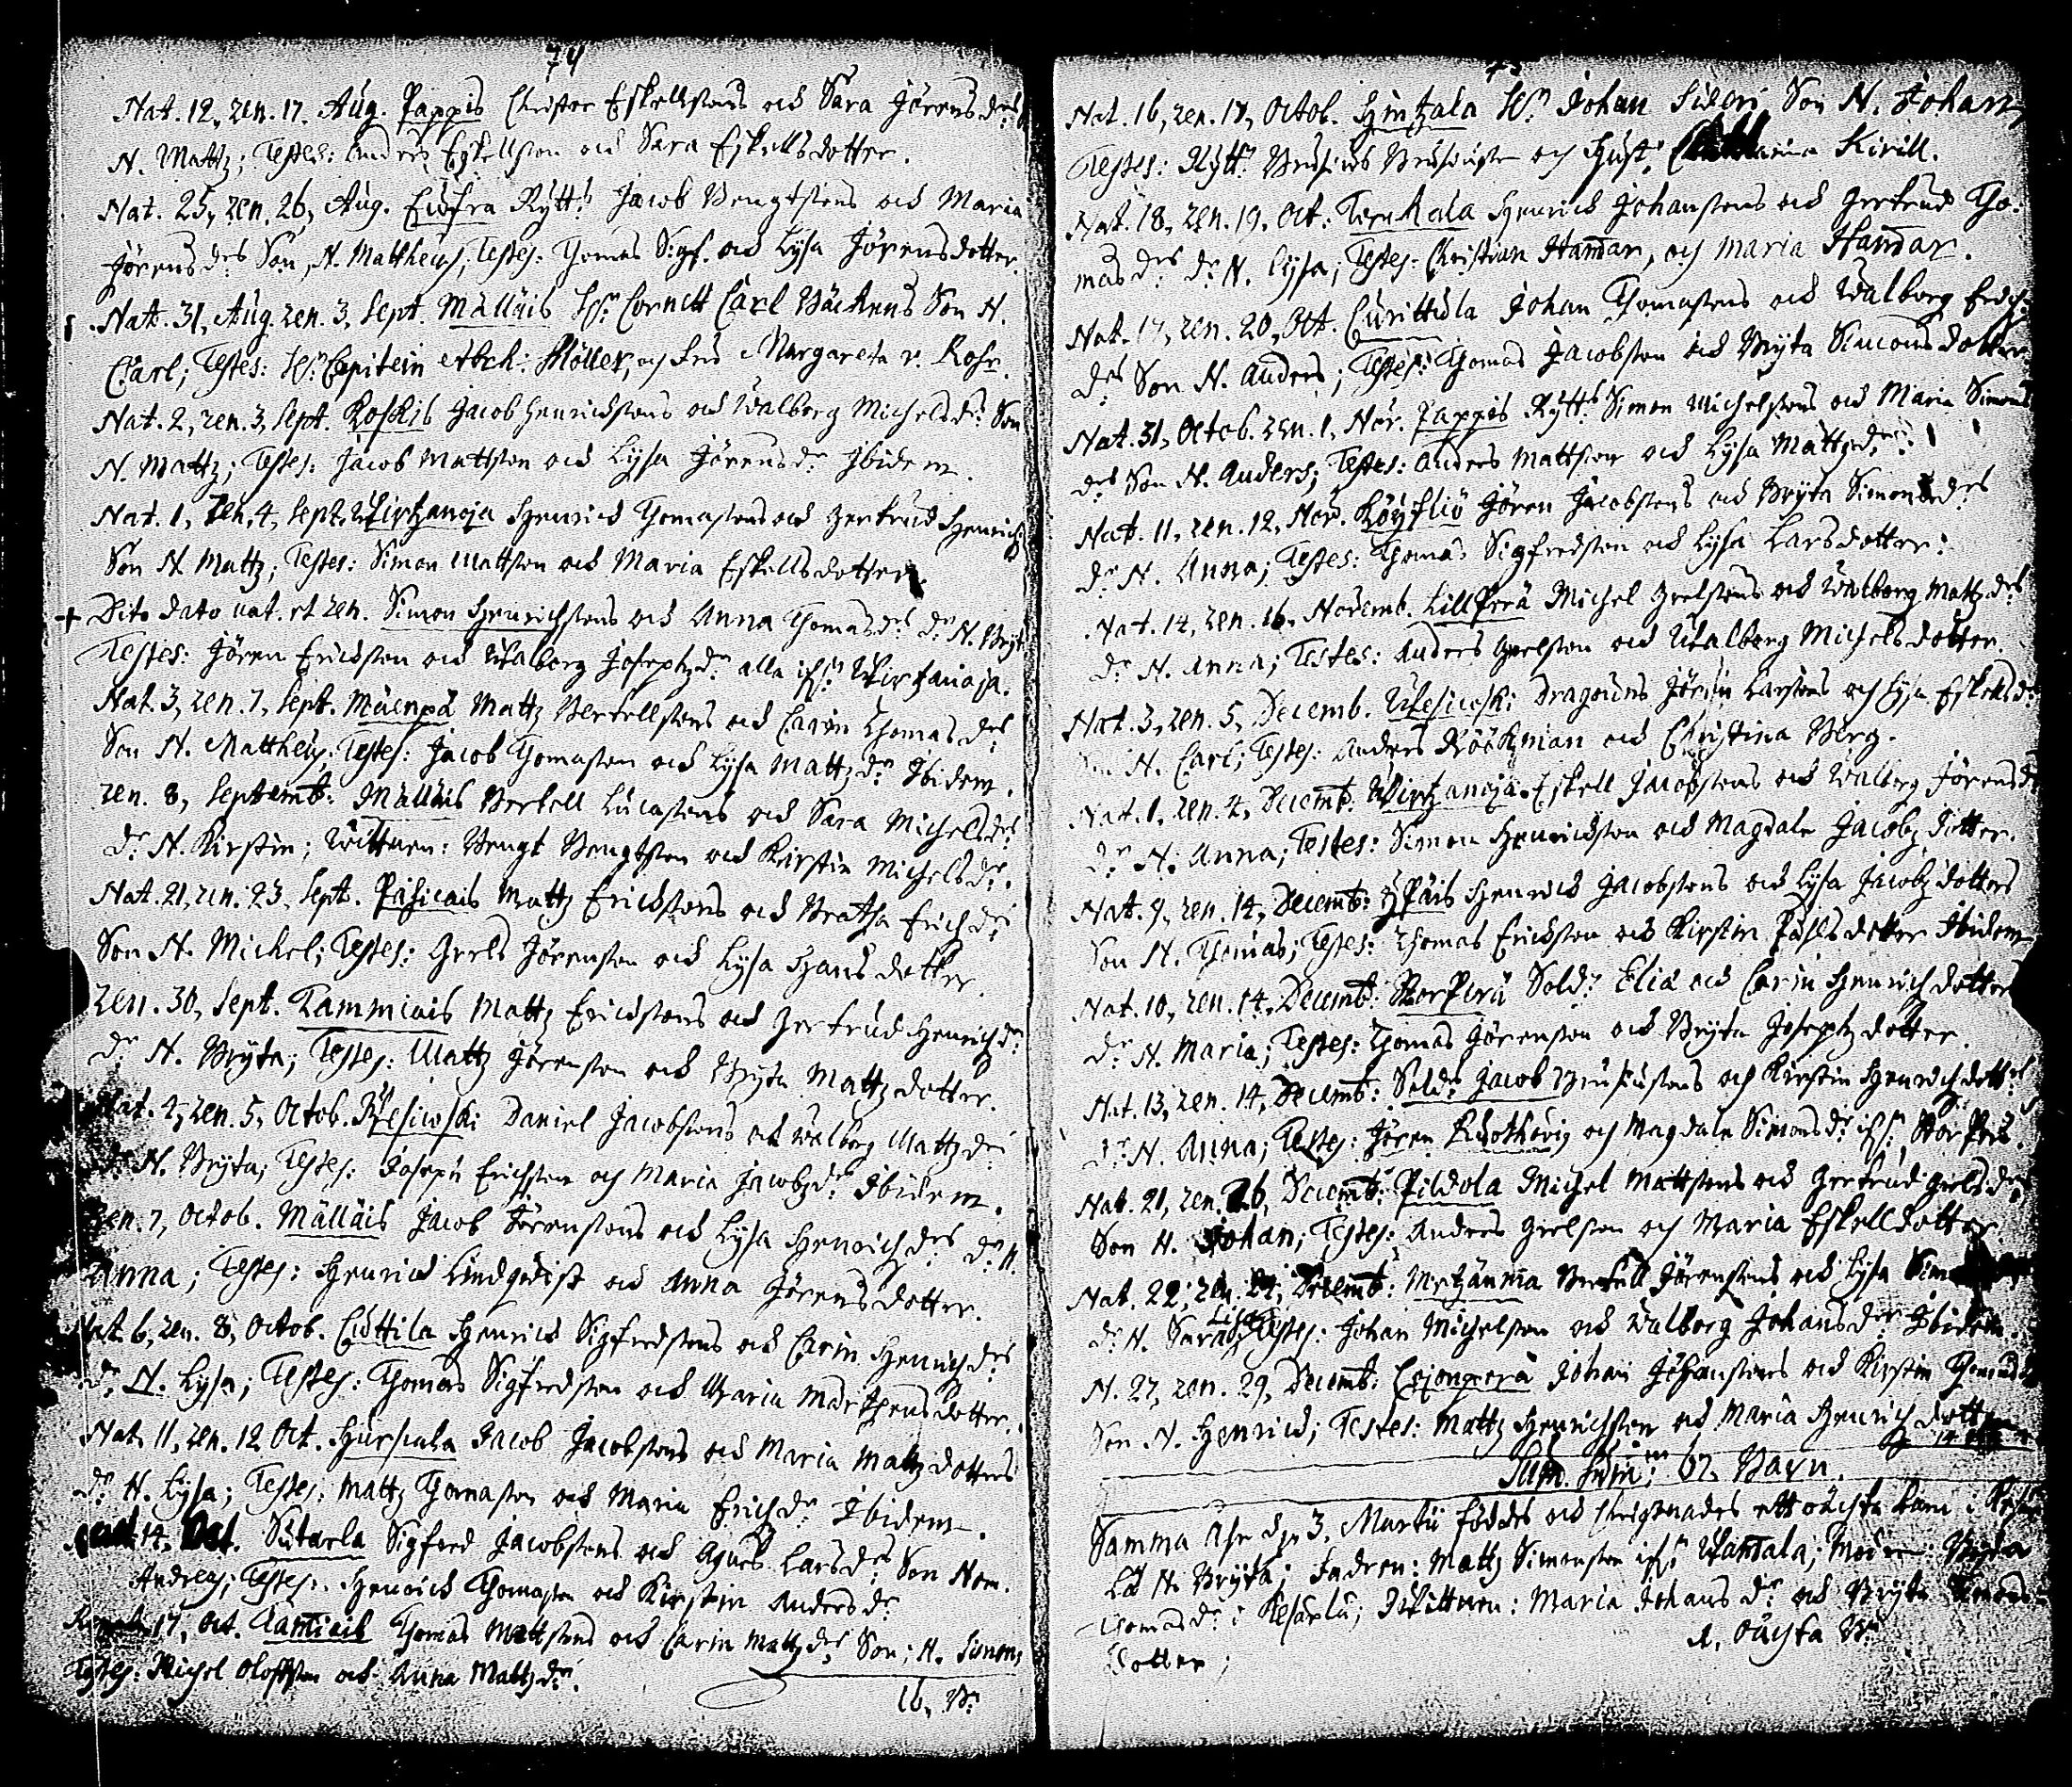 74
Nat. 12, ren. 17. Aug. Pappis Christer Eskellsons och Sara Jörensdr
N. Mattz; Testes: Anders Eskellson och Sara Eskellsdotter.
Nat. 25, ren. 26, Aug. Rytt: Jacob Bengtsons och Maria
Jörensdrs Son, N. Mattheus; Testes: Thomas Sigf. och Lysa Jörensdotter.
Nat. 31, Aug. ren. 3, Sept. Mälläis Hr Cornett Carl Son N.
Carl; Testes: Hr Capitein Möller, och Fru Margareta v. Rohr.
Nat. 2, ren. 3, Sept. Koskis Jacob Henrichsons och Walborg Michelsdrs Son
N. Mattz; Testes: Jacob Mattson och Lysa Jörensdr Ibidem.
Nat. 1, ren. 4, Sept. Wirtzanoja Henrich Thomasons och Gertrud Henrichs
Son N. Mattz; Testes: Simon Mattson och Maria Eskellsdotter.
+ Dito dato nat. et ren. Simon Henrichsons och Anna Thomasdrs dr N. Bryt
Testes: Jören Erichson och Walborg Josephzdr alla if: Wirtzanoja.
Nat. 3, ren. 7, Sept. Mäenpä Mattz Bertellsons och Carin Thomasdrs
Son N. Mattheus; Testes: Jacob Thomason och Lysa Mattzdr Ibidem.
ren. 8, Septemb: Mälläis Bertell Lucasons och Sara Michelsdrs
dr N. Kirstin; Wittnen: Bengt Bengtson och Kirstin Michelsdr.
Nat. 21, ren. 23, Sept. Mattz Erichsons och Erichdrs
Son N. Michel; Testes: Grels Jörenson och Lysa Hansdotter.
ren. 30, Sept. Tammiais Mattz Erichsons och Gertrud Henrichdrs
dr N. Bryta; Testes: Mattz Jörenson och Bryta Mattzdotter.
Nat. 4, ren. 5, Octob. Daniel Jacobsons och Walborg Mattzdrs
dr N. Bryta; Testes: Joseph Erichson och Maria Jacobzdr Ibidem.
ren. 7, Octob. Mälläis Jacob Jörensons och Lysa Henrichdrs dr N.
Anna; Testes: Henrich Lindqvist och Anna Jörensdotter.
Nat. 6, ren. 8, Octob. Cuttila Henrich Sigfredsons och Carin Henrichdrs
dr N. Lysa; Testes: Thomas Sigfredson och Maria Marthensdotter.
Nat. 11, ren. 12 Oct. Hurskala Jacob Jacobsons och Maria Mattzdotters
dr N. Lysa; Testes: Mattz Thomason och Maria Erichdr Ibidem.
14. Oct. Sutarla Sigfred Jacobsons och Agnes Larsdrs Son Nom.
Andreas; Testes: Henrich Thomason och Kirstin Andersdr
17, Oct. Thomas Mattsons och Carin Mattzdrs Son; N. Simon;
Testes: Michel Olofsson och Anna Mattzdr.
16, B:
Nat. 16, ren. 17, Octob. Hintzala Hr Johan Sideri Son N. Johan
Testes: Rytt: och Hust: Kirill.
Nat. 18, ren. 19, Oct: Henrich Johansons och Gertrud Tho-
masdrs dr N. Lysa; Testes: Christian Hamar, och Maria Hamar.
Nat. 17, ren. 20, Oct. Curittula Johan Thomasons och Walborg Erich-
drs Son N. Anders; Testes: Thomas Jacobson och Bryta Simonsdotter
Nat. 31, Octob. ren. 1, Nov. Pappis Rytt: Simon Michelsons och Maria Simons
drs Son N. Anders; Testes: Anders Mattson och Lysa Mattzdr:
Nat. 11, ren. 12, Nov. Köyliö Jören Jacobsons och Bryta Simonsdrs
dr N. Anna; Testes: Thomas Sigfredson och Lysa Larsdotter:
Nat. 14, ren. 16, Novemb. LillPerä Michel Grelsons och Walborg Mattzdrs
dr N. Anna; Testes: Anders Grelson och Walborg Michelsdotter.
Nat. 3, ren. 5, Decemb. Dragouns Jören Larsons och Lysa Eskelsdr
Son N. Carl; Testes: Anders och Christina Berg.
Nat. 1, ren. 4, Decemb: Wirtzanoja Eskell Jacobsons och Walborg Jörensdr
dr N. Anna; Testes: Simon Henrichson och Magdale Jacobzdotter.
Nat. 9, ren. 14, Decemb: Henrich Jacobsons och Lysa Jacobzdotters
Son N. Thomas; Testes: Thomas Erichson och Kirstin Påhlsdotter Ibidem
Nat. 10, ren. 14, Decemb: StorPerä Sold: Elia och Carin Henrichdotter
dr N. Maria; Testes: Thomas Jörenson och Bryta Josephzdotter.
Nat. 13, ren. 14, Decemb: Sold: Jacob och Kirstin Henrichdotters
dr N. Anna; Testes: Jören och Magdale Simonsdr if: StorPerä.
Nat. 21, ren. 26, Decemb: Pildola Michel Mattsons och Gertrud Grelsdrs
Son N. Johan; Testes: Anders Grelson och Maria Eskelldotter
Nat. 22, ren. 27, Decemb: Bertill Jörensons och Lysa
dr N. Sara Lisa; Testes: Johan Michelson och Walborg Johansdr Ibidem.
N. 27, ren. 29, Decemb: Cojonperä Johan Johansons och Kirstin
Son N. Henrich; Testes: Mattz Henrichson och Maria Henrichdotter
Sum. 67. Barn.
Samma Åhr d. 3, Martii föddes och Christnades ett oächta barn i
N. Bryta; Fadren: Mattz Simonson if: Wamala; Moder: Bryta
Thomasdr i Kesärlä; Wittnen: Maria Johansdr och Bryta
dotter;
1, oächta B: